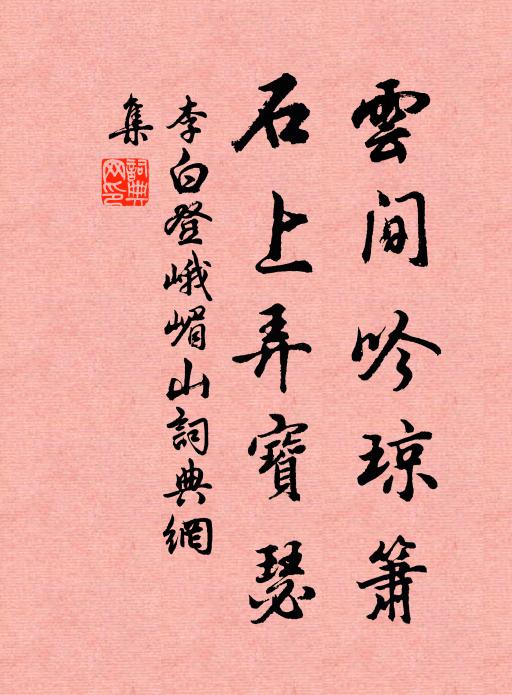 雲間吟瓊簫
石上弄寶瑟
李白登峨嵋山詞典網
集
詞典網印